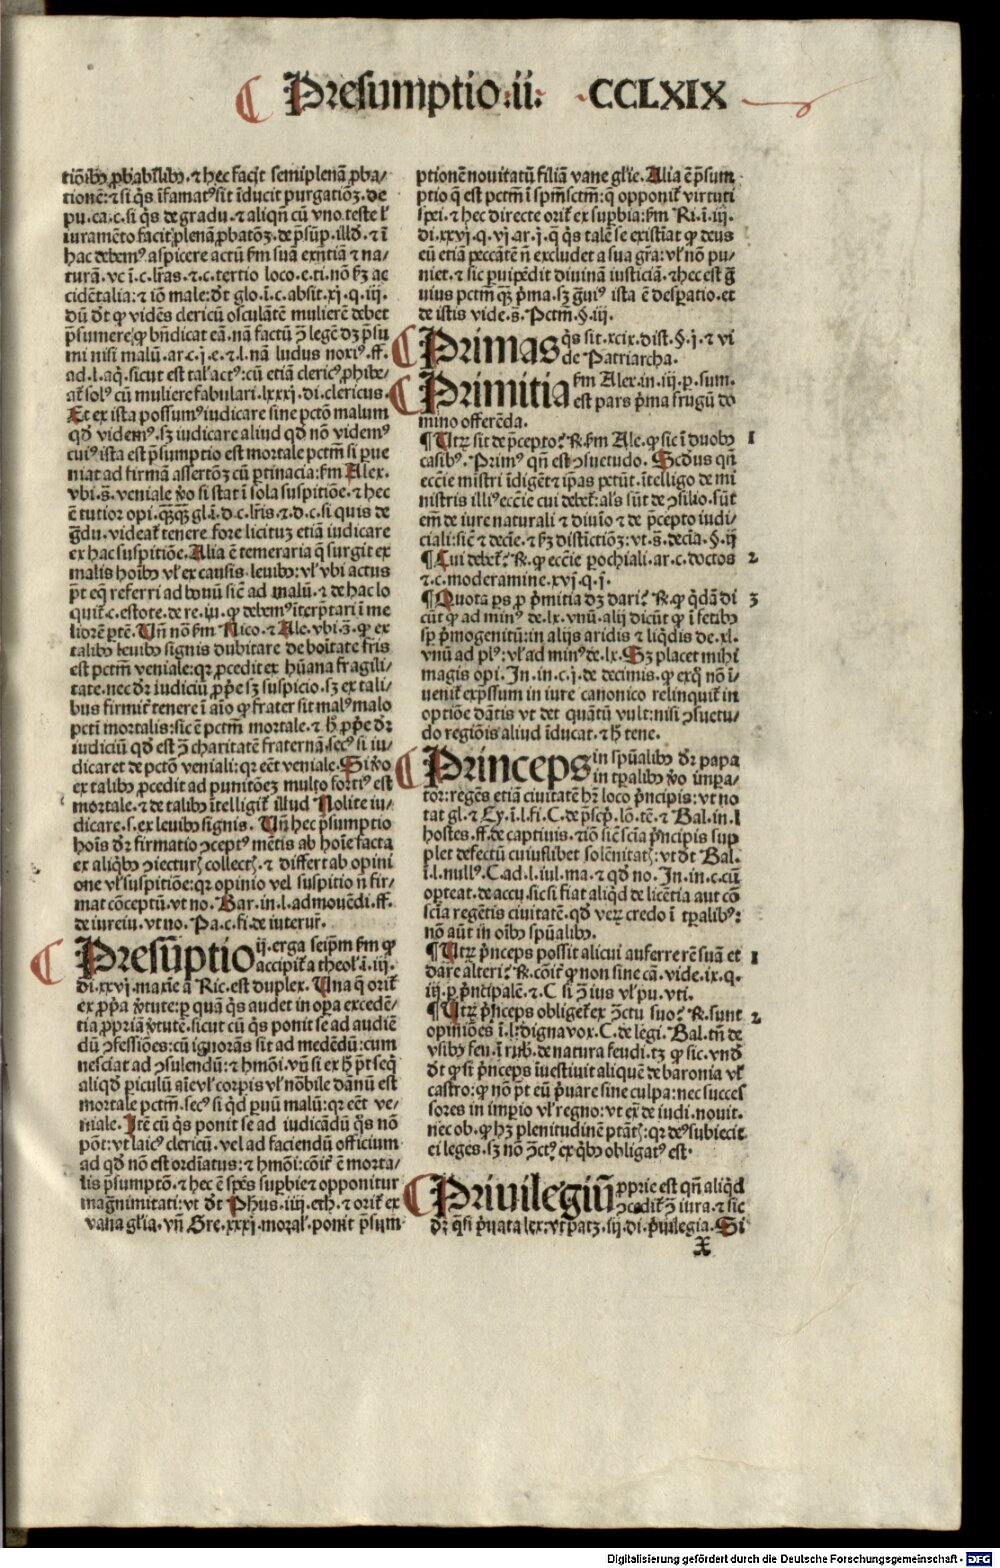 Presumptio .ii. CCLXIX
tiōibꝰ ꝓbabilibꝰ. ⁊ hec facit semiplenā ꝓba/
tionē: ⁊ si q̄s īfamatꝰ sit īducit purgatiōꝫ. de
pu. ca. c. si q̄s de gradu. ⁊ aliqn̄ cū vno. teste ł
iuramēto facit plenā ꝓbatōꝫ. de p̄sūp. illd̄. ⁊ ī
hac debemꝰ aspicere actū fm suā exn̄tiā ⁊ na/
turā. vt ī. c. lr̄as. ⁊ c. tertio loco. e. ti. nō ẜꝫ ac
cidētalia: ⁊ iō male: dt̄ glo. ī. c. absit. xj. q. iij.
dū dt̄ ꝙ vidēs clericū osculātē mulierē debet
p̄sumere ꝙ bn̄dicat eā. nā factū ꝯ̄ legē dꝫ p̄su
mi nisi malū. ar. c. j. e. ⁊ l. nā ludus noxiꝰ. ff.
ad. l. aq̄. sicut est tal' actꝰ: cū etiā clericꝰ ꝓhibe/
at̄ solꝰ cū muliere fabulari. lxxxj. di. clericus.
Et ex ista possumꝰ iudicare sine pctō malum
qd̄ videmꝰ. sꝫ iudicare aliud qd̄ nō videmꝰ
cuiꝰ ista est p̄sumptio est mortale pctm̄ si pue
niat ad firmā assertōꝫ cū ꝑtinacia: fm Alex.
vbi. s̄. veniale v̊o si stat ī sola suspitiōe. ⁊ hec
ē tutior opi. ꝗꝗ gl. ī. d. c. lr̄is. ⁊ d. c. si quis de
ḡdu. videat̄ tenere fore licituꝫ etiā iudicare
ex hac suspitiōe. Alia ē temeraria q̄ surgit ex
malis hoībꝰ vł ex causis leuibꝰ: vł vbi actus
p̄t eq̄ referri ad bonū sic̄ ad malū. ⁊ de hac lo
quit̄. c. estote. de re. iu. ꝙ debemꝰ īterp̄tari ī me
liorē ꝑtē. Vn̄ nō fm Nico. ⁊ Ale. vbi. s̄. ꝙ ex
talibꝰ leuibꝰ signis dubitare de boītate fris
est pctm̄ veniale: qr ꝓcedit ex hūana fragili/
tate. nec dr̄ iudiciū ꝓṗe sꝫ suspicio. sꝫ ex tali/
bus firmit̄ tenere ī aīo ꝙ frater sit malꝰ malo
pcti mortalis: sic̄ ē pctm̄ mortale. ⁊ h̄ ꝓṗe dr̄
iudiciū qd̄ est ꝯ̄ charitatē fraternā. secꝰ si iu/
dicaret de pctō veniali: qr eēt veniale. Si v̊o
ex talibꝰ ꝓcedit ad punitōeꝫ multo fortiꝰ est
mortale. ⁊ de talibꝰ ītelligit̄ illud Nolite iu/
dicare. s. ex leuibꝰ signis. Vn̄ hec p̄sumptio
hoīs dr̄ firmatio ꝯceptꝰ mētis ab hoīe facta
ex aliq̄bꝰ ꝯiecturꝭ collectꝭ. ⁊ differt ab opini
one vł suspitiōe: qr opinio vel suspitio n̄ fir/
mat cōceptū. vt no. Bar. in. l. admouēdi. ff.
de iureiu. vt no. Pa. c. fi. de iureiur̄.
Presūptio ij. erga seip̄m fm ꝙ
accipit̄ a theol' ī. iij.
di. xxvj. maxīe a Ric. est duplex. Una q̄ orit̄
ex ꝓp̄a v̊tute: ꝑ quā q̄s audet in oꝑa excedē/
tia ꝓpriā v̊tutē. sicut cū q̄s ponit se ad audiē
dū ꝯfessiōes: cū ignorās sit ad medēdū: cum
nesciat ad ꝯsulendū: ⁊ hmōi. vn̄ si ex h̄ p̄t seq̄
aliqd̄ ꝑiculū aīe vł corꝑis vł nōbile dānū est
mortale pctm̄. secꝰ si qd̄ ꝑuū malū: qr eēt ve/
niale. Itē cū q̄s ponit se ad iudicādū q̄s nō
pōt: vt laicꝰ clericū. vel ad faciendū officium
ad qd̄ nō est ordīatus: ⁊ hmōi: cōit̄ ē morta/
lis p̄sumptō. ⁊ hec ē spēs suꝑbie ⁊ opponitur
magnimitati: vt dt̄ Phus. iiij. eth. ⁊ orit̄ ex
vana gl̄ia. vn̄ Gre. xxxj. moral'. ponit p̄sum
ptionē nouitatū filiā vane gl̄ie. Alia ē p̄sum
ptio q̄ est pctm̄ ī spm̄sctm̄: q̄ opponit̄ virtuti
spei. ⁊ hec directe orit̄ ex suꝑbia: fm Ri. ī. iij.
di. xxvj. q. vj. ar. j. q̄ q̄s talē se existiat ꝙ deus
eū etiā peccātē n̄ excludet a sua gr̄a: vł nō pu/
niet. ⁊ sic ꝑuipēdit diuinā iusticiā. ⁊ hec est ḡ
uius pctm̄ ꝗꝫ p̄ma. sꝫ ḡuiꝰ ista ē desꝑatio. et
de istis vide. s̄. Pctm̄. §. iij.
Primas q̄s sit. xcix. dist. §. j. ⁊ vi
de Patriarcha.
Primitia fm Alex. in. iij. p. sum.
est pars p̄ma frugū do
mino offerēda.
¶ Utꝝ sit de p̄cepto? R. fm Ale. ꝙ sic ī duobꝰ 1
casibꝰ. Primꝰ qn̄ est ꝯsuetudo. Scd̄us qn̄
ecc̄ie mīstri īdigēt ⁊ ip̄as petūt. ītelligo de mi
nistris illiꝰ ecc̄ie cui debēt̄: als̄ sūt de ꝯsilio. sūt
em̄ de iure naturali ⁊ diuīo ⁊ de p̄cepto iudi/
ciali: sic̄ ⁊ decīe. ⁊ ẜꝫ distictiōꝫ: vt. s̄. decīa. §. ij
¶ Cui debēt̄? R. ꝙ ecc̄ie ꝑochiali. ar. c. doctos 2
⁊. c. moderamine. xvj. q. j.
¶ Quota ꝑs ꝓ p̄mitia dꝫ dari? R. ꝙ q̄dā di 3
cūt ꝙ ad minꝰ de. lx. vnū. alij dicūt ꝙ ī fetibꝰ
sꝑ p̄mogenitū: in alijs aridis ⁊ liq̄dis de. xl.
vnū ad plꝰ: vł ad minꝰ de. lx. Sꝫ placet mihi
magis opi. In. in. c. j. de decimis. ꝙ exq̊ nō ī/
uenit̄ exp̄ssum in iure canonico relinquit̄ in
optiōe dātis vt det quātū vult: nisi ꝯsuetu/
do regiōis aliud īducat. ⁊ h̄ tene.
Princeps in spūalibꝰ dr̄ papa
in tꝑalibꝰ v̊o imꝑa/
tor: regēs etiā ciuitatē hꝫ loco p̄ncipis: vt no
tat gl. ⁊ Cy. ī. l. fi. C. de p̄scp̄. lō. tē. ⁊ Bal. in. l
hostes. ff. de captiuis. ⁊ iō sic̄ scīa p̄ncipis sup
plet defectū cuiuslibet solēnitatꝭ: vt dt̄ Bal.
ī. l. nullꝰ. C. ad. l. iul. ma. ⁊ qd̄ no. In. in. c. cū
oꝑteat. de accu. sic si fiat aliqd̄ de licētia aut cō
scīa regētis ciuitatē. qd̄ verꝝ credo ī tꝑalibꝰ:
nō aūt in oībꝰ spūalibꝰ.
¶ Utꝝ p̄nceps possit alicui auferre rē suā et 1
dare alteri? R. cōit̄ ꝙ non sine cā. vide. ix. q.
iij. ꝑ p̄ncipalē. ⁊. C si ꝯ̄ ius vł pu. vti.
¶ Utꝝ p̄nceps obliget̄ ex ꝯ̄ctu suo? R. sunt 2
opiniōes ī. l. digna vox. C. de legi. Bal. tn̄ de
vsibꝰ feu. ī rub̄. de natura feudi. tꝫ ꝙ sic. vnd̄
dt̄ ꝙ si p̄nceps īuestiuit aliquē de baronia vł
castro: ꝙ nō p̄t eū p̄uare sine culpa: nec succes
sores in imꝑio vł regno: vt ex̄ de iudi. nouit.
nec ob. ꝙ hꝫ plenitudinē ptātꝭ: qr deꝰ subiecit
ei leges. sꝫ nō ꝯ̄ctꝰ ex q̄bꝰ obligatꝰ est.
Priuilegiū ꝓprie est qn̄ aliqd̄
ꝯcedit̄ ꝯ̄ iura. ⁊ sic
dr̄ q̄si p̄uata lex: vt patꝫ. iij. di. p̄uilegia. Si
X
Digitalisierung gefördert durch die Deutsche Forschungsgemeinschaft - DFG